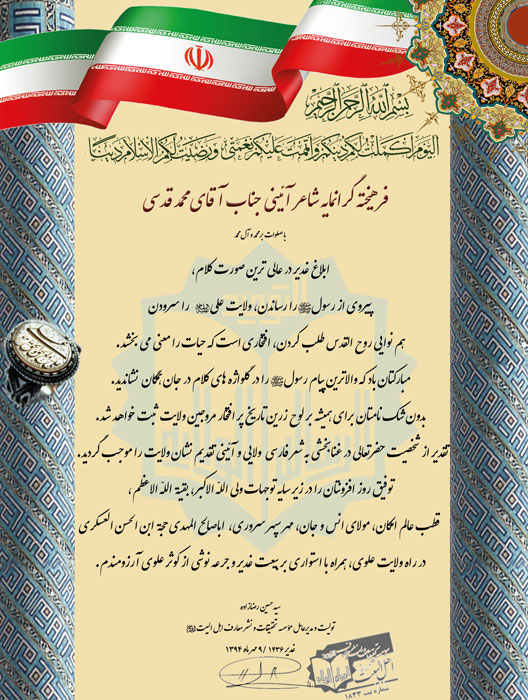 بسم الله الرحمن الرحیم
الیوم اکملت لکم دینکم و اتممت علیکم نعمتی و رضیت لکم الاسلام دینا
فرهیخته گرانمایه شاعر آئینی جناب آقای محمد قدسی
با صلوات بر محمد و آل محمد
ابلاغ غدیر در عالی ترین صورت کلام،
پیروی از رسول ﷺ را رساندن، ولایت علی را سرودن
هم نوایی روح القدس طلب کردن، افتخاری است که حیات را معنی می بخشد.
مبارکتان باد که والاترین پیام رسول ﷺ را در گلواژه های کلام در جان همگان نشاندید.
بدون شک نامتان برای همیشه بر لوح زرین تاریخ پر افتخار مروجین ولایت ثبت خواهد شد.
تقدیر از شخصیت حضرتعالی در غنابخشی به شعر فارسی ولایی و آئینی تقدیم نشان ولایت را موجب گردید.
توفیق روز افزونتان را در زیر سایه توجهات ولی الله الاکبر، بقیة الله الاعظم،
قطب عالم امکان، مولای انس و جان، مهر سپهر سروری، اباصالح المهدی حجة ابن الحسن العسکری
در راه ولایت علوی، همراه با استواری بر بیعت غدیر و جرعه نوشی از کوثر علوی آرزومندم.
سید حسین رضازاده
تولیت و مدیرعامل مؤسسه تحقیقات و نشر معارف اهل البیت
غدیر ۱۴۳۶ / ۹ مهرماه ۱۳۹۴
اهل البیت
شماره ثبت ۱۸۳۳